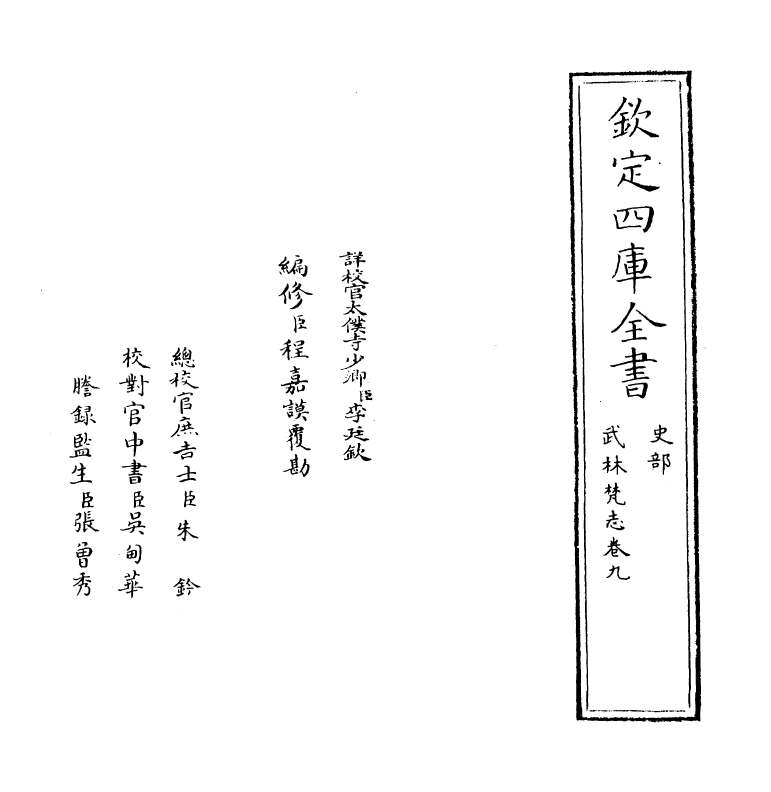 欽定四庫全書
史部
武林梵志卷九
詳校官太僕寺少卿臣李廷欽
編修臣程嘉謨覆勘
總校官庶吉士臣朱鈐
校對官中書臣吳甸華
謄錄監生臣張曾秀